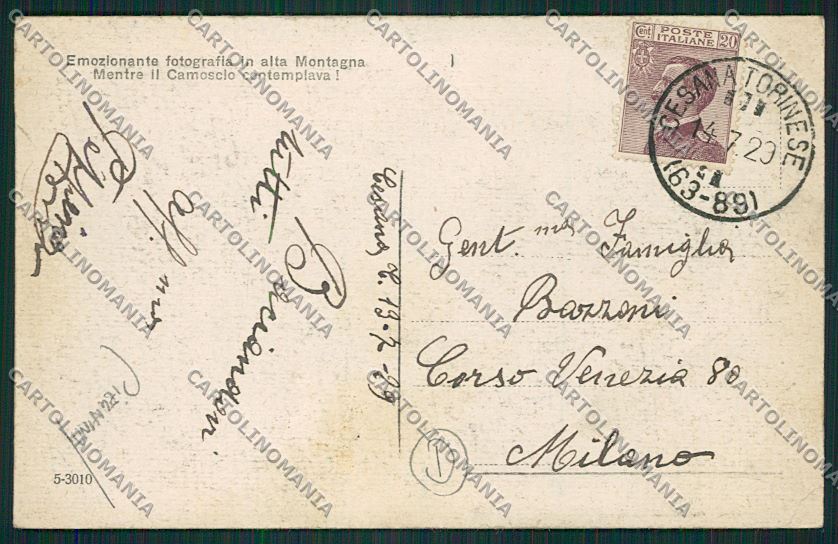 Emozionante fotografia in alta Montagna
Mentre il Camoscio contemplava !
Cent. 20
POSTE
ITALIANE
CESANA TORINESE
14.7.29
(63-89)
Gent.ma Famiglia
Bazzoni
Corso Venezia 80
Milano
Cesana T. 13-7-29
tutti.
aff.mo
5-3010
CARTOLINOMANIA